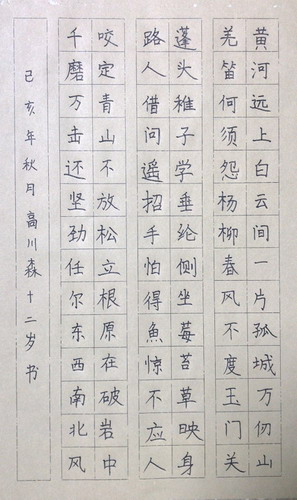 黄河远上白云间一片孤城万仞山
羌笛何须怨杨柳春风不度玉门关
蓬头稚子学垂纶侧坐莓苔草映身
路人借问遥招手怕得魚惊不应人
咬定青山不放松立根原在破岩中
千磨万击还坚劲任尔东西南北风
己亥年秋月高川森十二岁书